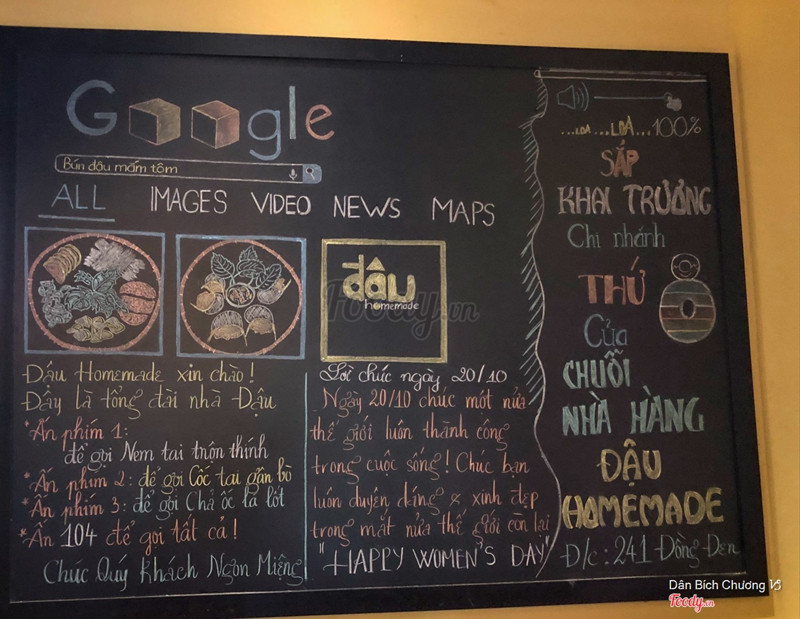 Google
Bún đậu mắm tôm
ALL IMAGES VIDEO NEWS MAPS
đậu
homemade
Foody.vn
Đậu Homemade xin chào!
Đây là tổng đài nhà Đậu
*Ấn phím 1:
để gọi Nem tai trộn thính
*Ấn phím 2: để gọi Cốc tai gân bò
*Ấn phím 3: để gọi Chả ốc lá lốt
*Ấn 104 để gọi tất cả!
Chúc Quý Khách Ngon Miệng
Lời chúc ngày, 20/10
Ngày 20/10 chúc một nửa
thế giới luôn thành công
trong cuộc sống! Chúc bạn
luôn duyên dáng & xinh đẹp
trong mắt nửa thế giới còn lại
"HAPPY WOMEN'S DAY"
...LOA...LOA...100%
SẮP
KHAI TRƯƠNG
Chi nhánh
THỨ
Của
CHUỖI
NHÀ HÀNG
ĐẬU
HOMEMADE
Đ/c: 241 Đồng Đen
Dân Bích Chương
Foody.vn